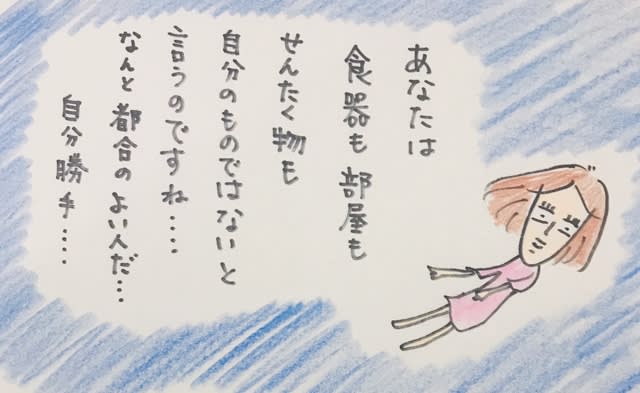 あなたは
食器も部屋も
せんたく物も
自分のものではないと
言うのですね‥‥
なんと都合のよい人だ‥‥
自分勝手‥‥